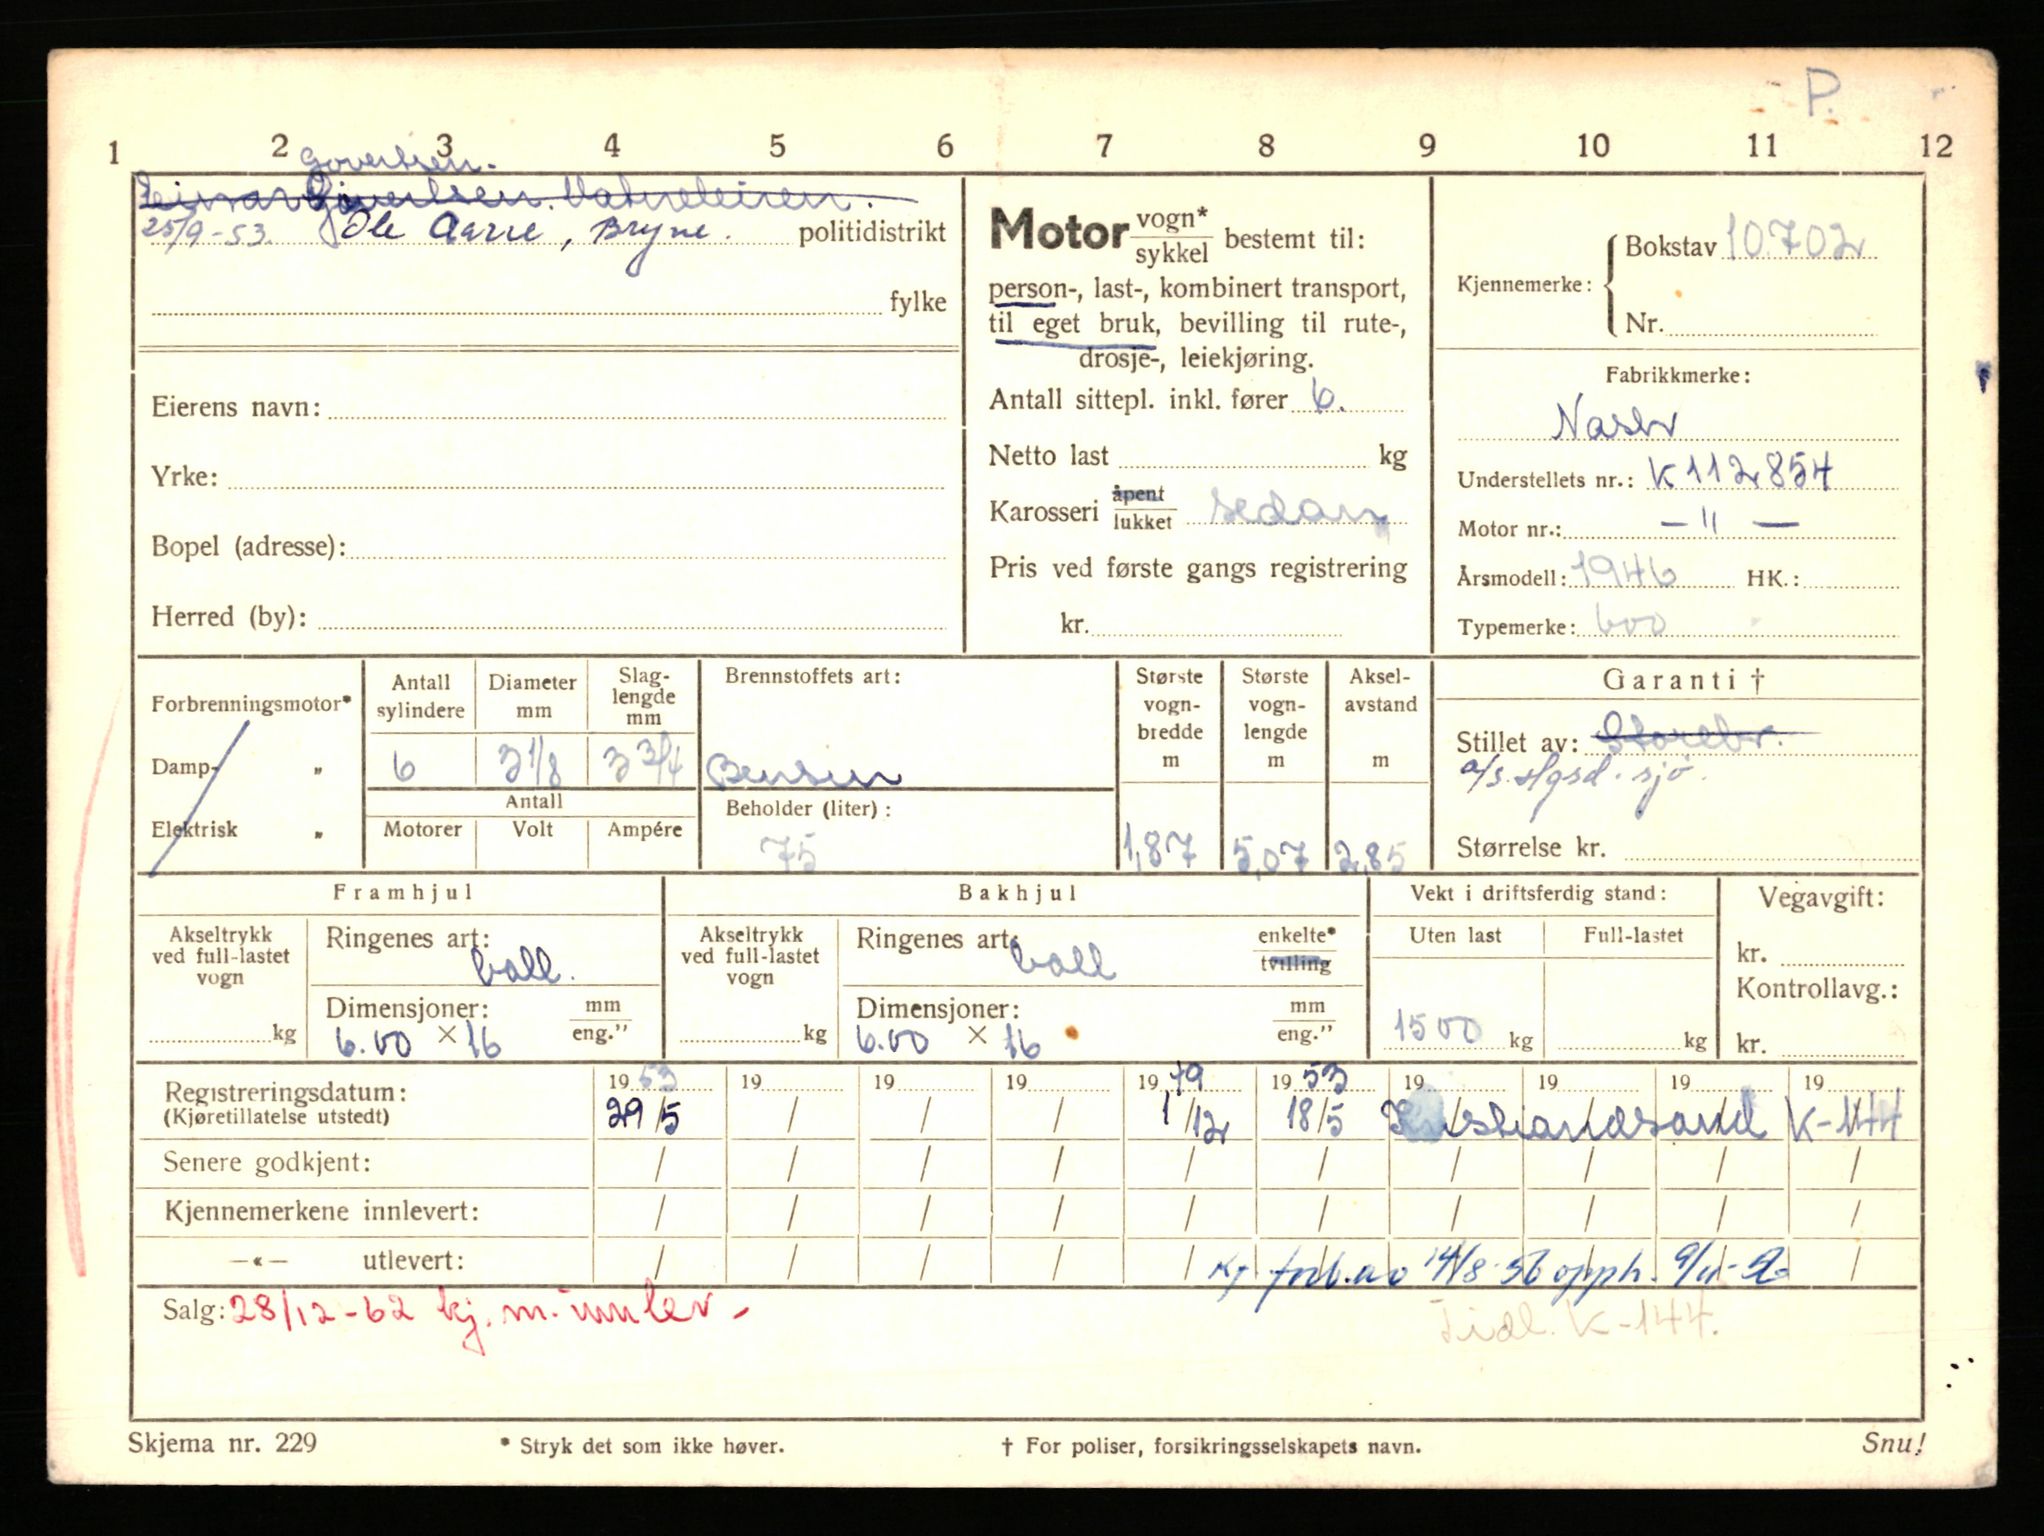 P.
1 2 3 4 5 6 7 8 9 10 11 12
Govertsen.
Einar Govertsen. Vatneleiren.
25/9-53. Ole Aarre, Bryne. politidistrikt
fylke
Eierens navn:
Yrke:
Bopel (adresse):
Herred (by):
Motor vogn* / sykkel bestemt til:
person-, last-, kombinert transport,
til eget bruk, bevilling til rute-,
drosje-, leiekjøring.
Antall sittepl. inkl. fører 6.
Netto last kg
Karosseri åpent / lukket sedan
Pris ved første gangs registrering
kr.
Kjennemerke: Bokstav 10.702
Nr.
Fabrikkmerke:
Nash
Understellets nr.: K 112854
Motor nr.: — " —
Årsmodell: 1946 HK.:
Typemerke: 600
Forbrenningsmotor*
Damp- „
Elektrisk „
Antall sylindere
6
Diameter mm
3 1/8
Slag-lengde mm
3 3/4
Antall
Motorer Volt Ampére
Brennstoffets art:
Bensin
Beholder (liter):
75
Største vogn-bredde m
1,87
Største vogn-lengde m
5,07
Aksel-avstand m
2,85
Garanti †
Stillet av: Storebr.
a/s. Hgsd. sjø.
Størrelse kr.
Framhjul
Akseltrykk ved full-lastet vogn
kg
Ringenes art: ball.
Dimensjoner: mm / eng."
6.00 × 16
Bakhjul
Akseltrykk ved full-lastet vogn
kg
Ringenes art: ball
enkelte* / tvilling
Dimensjoner: mm / eng."
6.00 × 16
Vekt i driftsferdig stand:
Uten last Full-lastet
1500 kg kg
Vegavgift:
kr.
Kontrollavg.:
kr.
Registreringsdatum: 19 53 19 19 19 19 49 19 53 19 19 19 19
(Kjøretillatelse utstedt) 29/5 / / / 1/12 18/5 Kristiandsand K-144
Senere godkjent: / / / / / / / / / /
Kjennemerkene innlevert: / / / / / / / / / /
—«— utlevert: / / / / / Kj. forb. av 14/8-56 opph. 9/11-56 /
Salg: 28/12-62 kj. m. innlev -
Tidl. K-144.
Skjema nr. 229
* Stryk det som ikke høver.
† For poliser, forsikringsselskapets navn.
Snu!